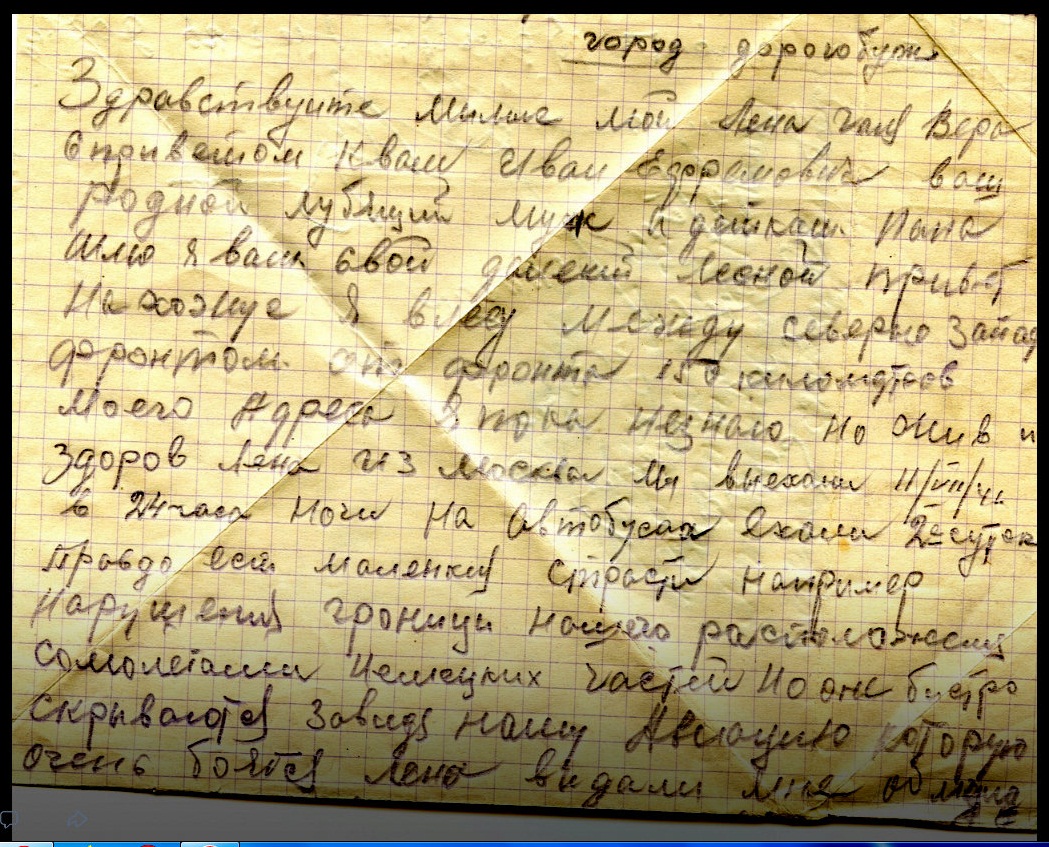 город дорогобуж
Здравствуите милые мои Лена Галя Вера
С приветом к вам Иван Ефрамович ваш
Родной лубящий муж и деткам Папа
Шлю я вам свой далекий лесной привет
Нахожус я в лесу Между северно Запад
фронтом от фронта 150 километров
Моего Адреса я пока незнаю Но Жив и
Здоров Лена из Москвы мы выехали 11/VII/41
в 24 часа Ночи На Автобусах Ехали 2е суток
правда есть маленкия страсти Например
Нарушения границы нашего расположения
самолетами Немецких частей Но они быстро
Скрываются Завидя нашу Авиацию которую
очень боятся Лена выдали мне